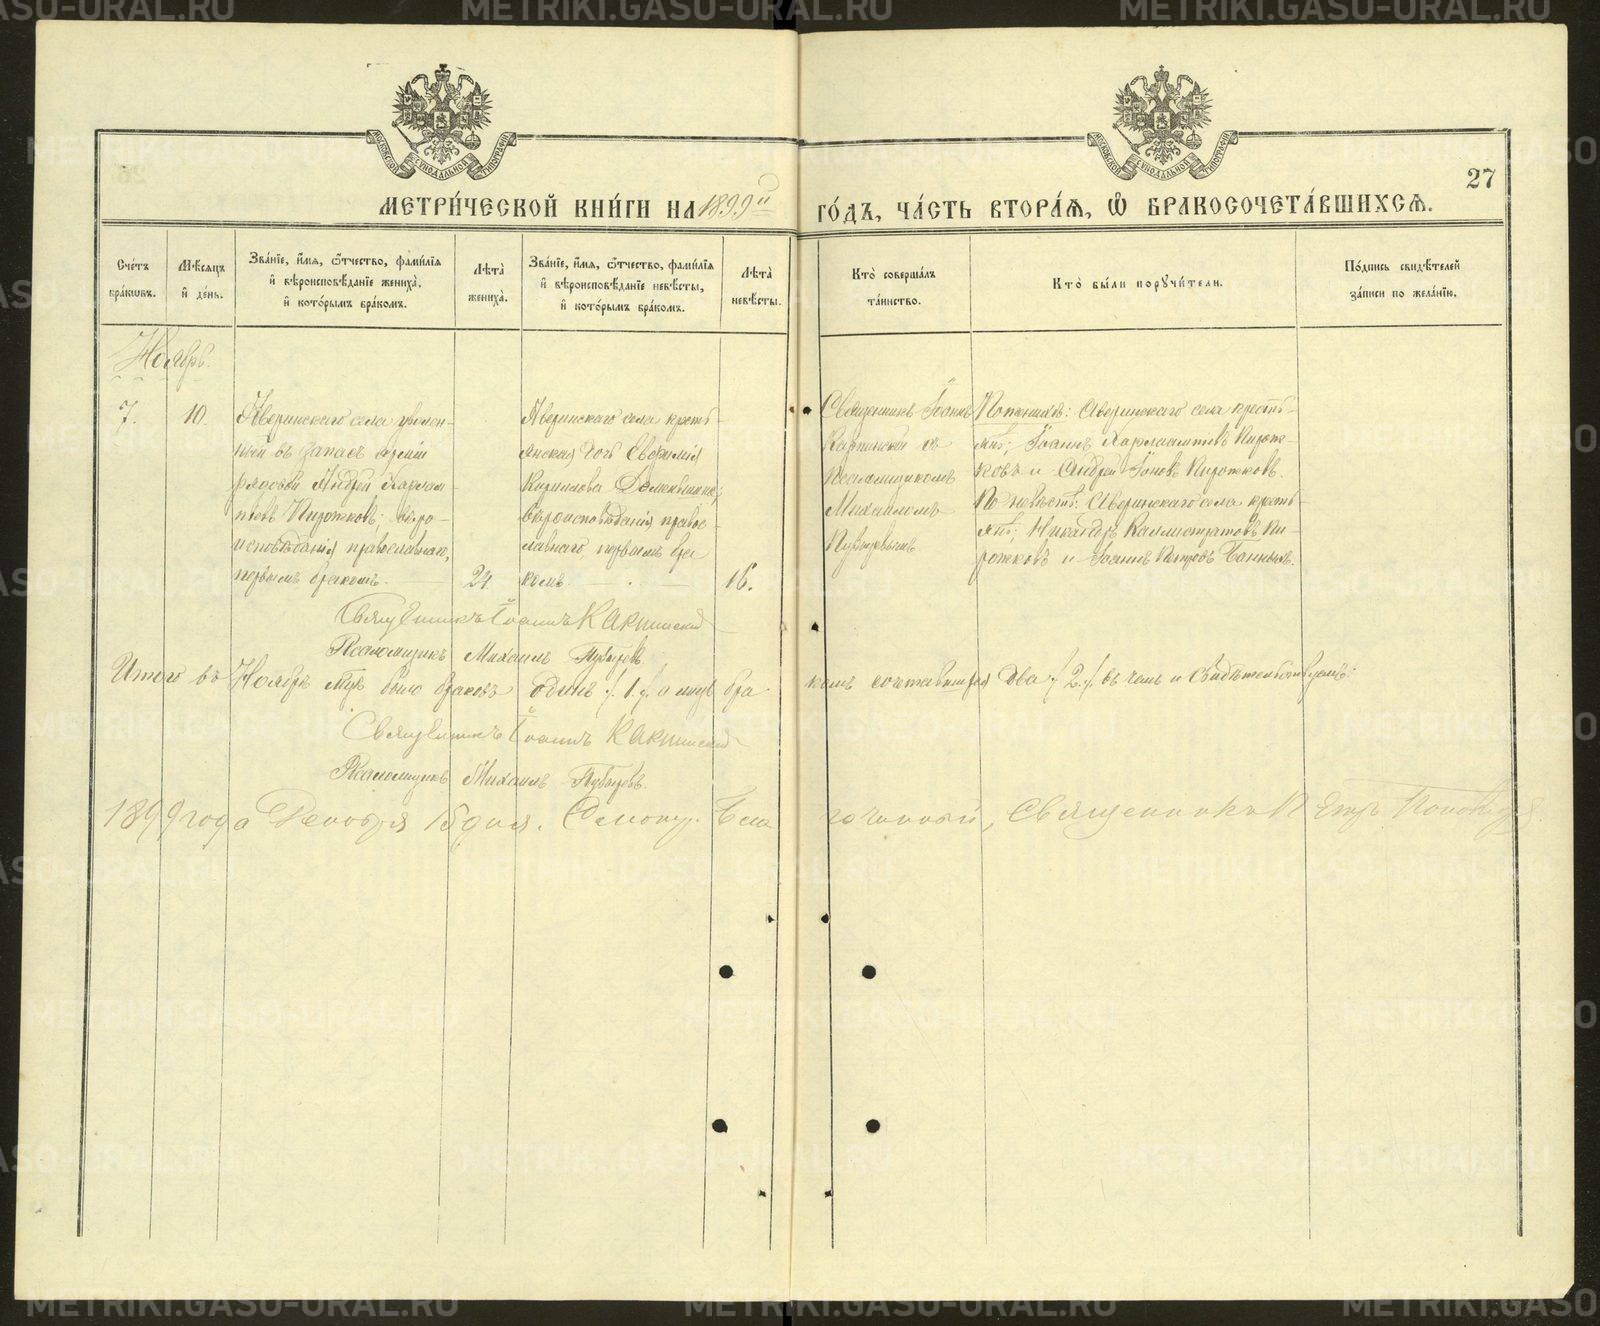 METRIKI.GASO-URAL.RU
МЕТРИ́ЧЕСКОЙ КНИ́ГИ НА 1899й ГО́ДЪ, ЧА́СТЬ ВТОРА́Я, Ѿ БРАКОСОЧЕТА́ВШИХСЯ.
27
Сче́тъ бра́кѡвъ.
Мѣ́сяцъ и҆ де́нь.
Зва́нїе, и҆́мя, ѻ҆́тчество, фами́лїя и҆ вѣроисповѣ́данїе жениха̀, и҆ кото́рымъ бра́комъ.
Лѣта̀ жениха̀.
Зва́нїе, и҆́мя, ѻ҆́тчество, фами́лїя и҆ вѣроисповѣ́данїе невѣ́сты, и҆ кото́рымъ бра́комъ.
Лѣта̀ невѣ́сты.
Кто̀ соверша́лъ та́инство.
Кто̀ бы́ли порꙋчи́тели.
По́дпись свидѣ́телей за́писи по жела́нїю.
Ноябрь.
7.
10.
Аверинскаго села уволен-
ный въ запасъ армiи
рядовой Андрей Харлам-
пiевъ Пирожковъ; вѣро-
исповѣданiя православнаго,
первымъ бракомъ.
24.
Аверинскаго села кресть-
янская дочь Евфимiя
Кириллова
вѣроисповѣданiя правос-
лавнаго, первымъ бра-
комъ
16.
Священникъ Iоаннъ
Какшинскiй съ
Псаломщикомъ
Михаиломъ
По женихѣ: Аверинскаго села кресть-
яне; Iоаннъ Харлампiевъ Пирож-
ковъ и Андрей Iоновъ Пирожковъ.
По невѣстѣ: Аверинскаго села кресть-
яне; Никандръ Каллистратовъ Пи-
рожковъ и Iоаннъ Петровъ Банныхъ.
Священникъ Iоаннъ Какшинскiй
Псаломщикъ Михаилъ
Итого въ Ноябрѣ мцѣ было браковъ одинъ /1./ а лицъ бра- комъ сочетавшихся два /2./ въ чемъ и свидѣтельствуемъ:
Священникъ Iоаннъ Какшинскiй
Псаломщикъ Михаилъ
1899 года Декабря 15 дня. Осмотр. Благочинный, Священникъ Петръ